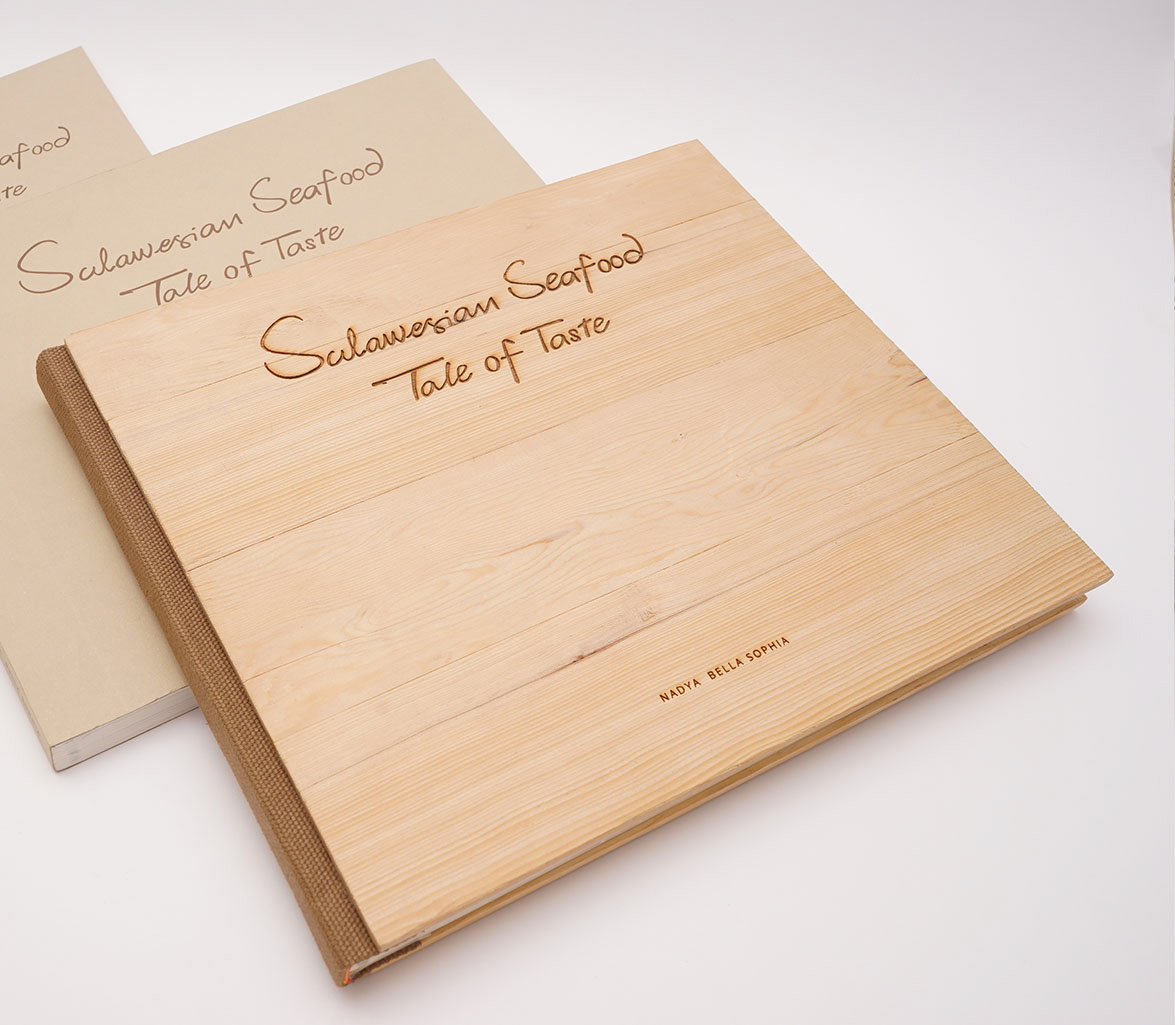 afood
te
Sulawesian Seafood
Tale of Taste
Sulawesian Seafood
Tale of Taste
NADYA BELLA SOPHIA